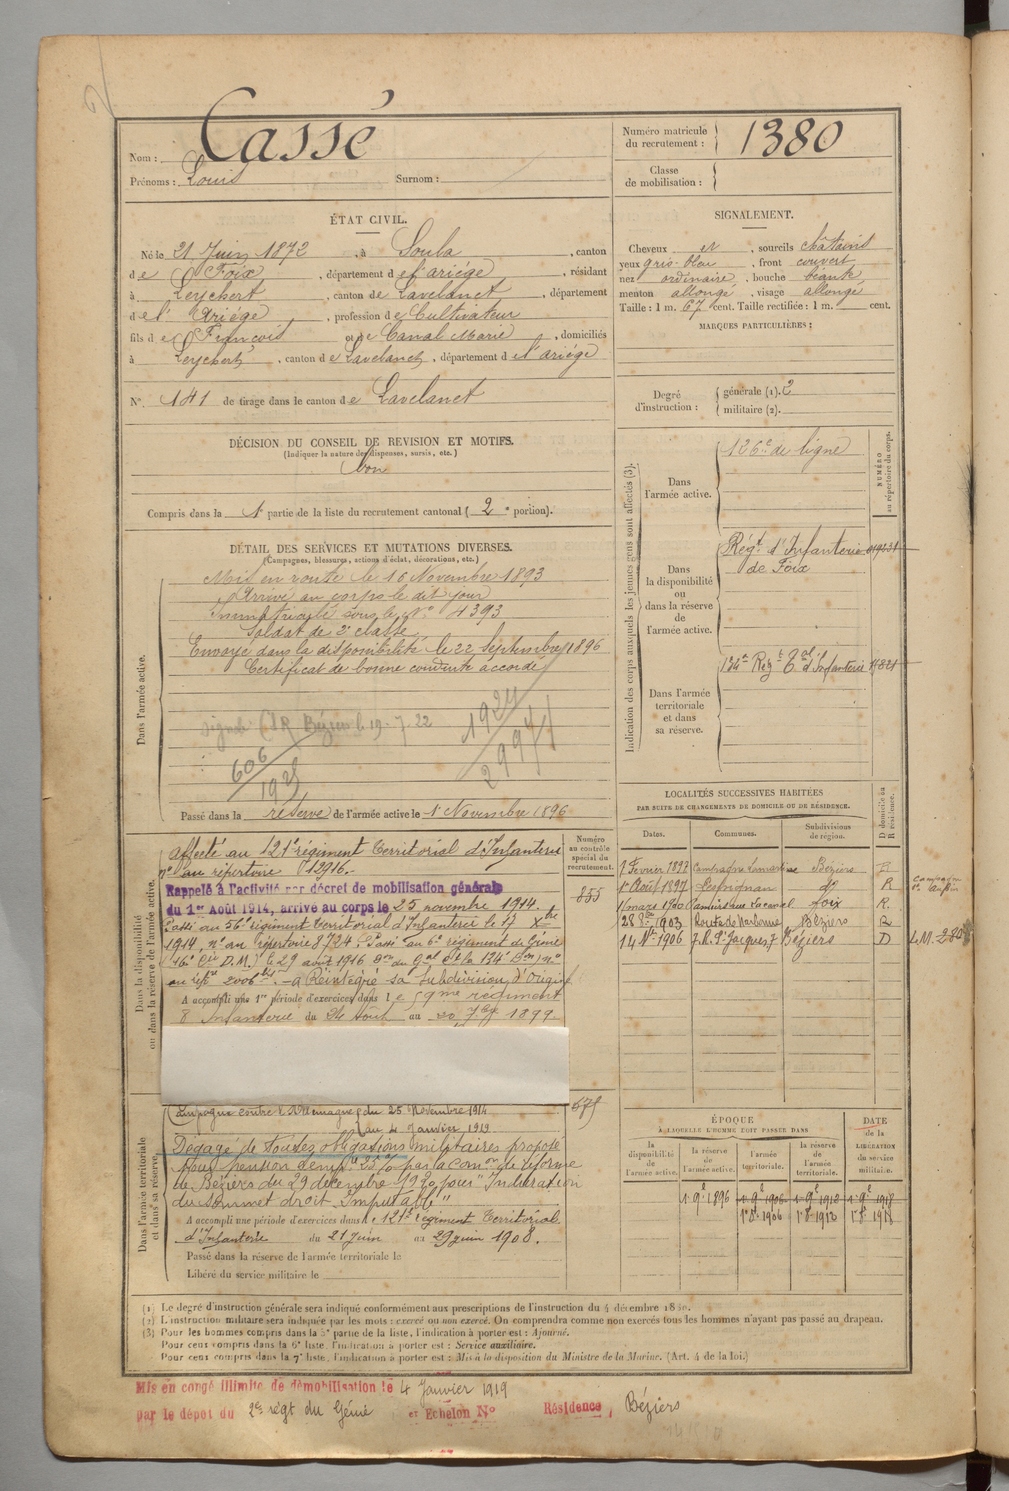 Nom : Cassé
Prénoms : Louis Surnom :
Numéro matricule du recrutement : 1380
Classe de mobilisation :
ÉTAT CIVIL.
Né le 21 Juin 1872, à Soula, canton
de Foix, département de l'ariége, résidant
à Leychert, canton de Lavelanet, département
de l'Ariége, profession de Cultivateur
fils de François et de Canal Marie, domiciliés
à Leychert, canton de Lavelanet, département de l'ariége
N° 141 de tirage dans le canton de Lavelanet
SIGNALEMENT.
Cheveux et, sourcils châtains
yeux gris-bleu, front couvert
nez ordinaire, bouche béante
menton allongé, visage allongé
Taille : 1 m. 67 cent. Taille rectifiée : 1 m. cent.
MARQUES PARTICULIÈRES :
Degré d'instruction : générale (1). 2
militaire (2).
DÉCISION DU CONSEIL DE REVISION ET MOTIFS.
(Indiquer la nature des dispenses, sursis, etc.)
bon
Compris dans la 1e partie de la liste du recrutement cantonal (2e portion).
DÉTAIL DES SERVICES ET MUTATIONS DIVERSES.
(Campagnes, blessures, actions d'éclat, décorations, etc.)
Dans l'armée active.
Mis en route le 16 Novembre 1893
Arrivé au corps le dit jour
Immatriculé sous le N° 4393
Soldat de 2e classe
Envoyé dans la disponibilité le 22 Septembre 1896
Certificat de bonne conduite accordé
Béziers le 19-7-22
1924
2997
606
1925
Passé dans la réserve de l'armée active le 1e Novembre 1896
Indication des corps auxquels les jeunes gens sont affectés (3).
NUMÉRO au répertoire du corps.
Dans l'armée active.
126e de ligne
Dans la disponibilité ou dans la réserve de l'armée active.
Régt d'Infanterie
de Foix
Dans l'armée territoriale et dans sa réserve.
134e Régt Tal d'Infanterie
LOCALITÉS SUCCESSIVES HABITÉES
PAR SUITE DE CHANGEMENTS DE DOMICILE OU DE RÉSIDENCE.
Dates. Communes. Subdivisions de région. D domicile ou R résidence.
7 Février 1897 Campagne Béziers R
1er Août 1897 Lespignan do R
1 mars 1900 Foix R.
28 8bre 1903 Route de Narbonne Béziers R
14 Nbre 1906 7. R. St Jacques 7 Béziers D
Dans la disponibilité ou dans la réserve de l'armée active.
Numéro au contrôle spécial du recrutement.
855
Affecté au 121e régiment Territorial d'Infanterie
n° au répertoire 12916.
Rappelé à l'activité par décret de mobilisation générale
du 1er Août 1914, arrivé au corps le 25 novembre 1914.
Passé au 56e régiment territorial d'Infanterie le 17 Xbre
1914, n° au répertoire 8724. Passé au 6e régiment de Génie
(16e Cie D.M.) le 29 août 1916
Réintégré sa subdivision d'Origine
A accompli une 1re période d'exercices dans le 59me régiment
d'Infanterie du 24 Aout au 20 7bre 1899
Dans l'armée territoriale et dans sa réserve.
675
Campagne contre l'Allemagne du 25 Novembre 1914
au 4 Janvier 1919
Dégagé de toutes obligations militaires proposé
pour pension
de Béziers du 29 décembre 1920 pour "Induration
du sommet droit Imputable"
A accompli une période d'exercices dans le 121e régiment Territorial
d'Infanterie du 21 juin au 29 juin 1908.
Passé dans la réserve de l'armée territoriale le
Libéré du service militaire le
ÉPOQUE
À LAQUELLE L'HOMME DOIT PASSER DANS
DATE de la LIBÉRATION du service militaire.
la disponibilité de l'armée active. la réserve de l'armée active. l'armée territoriale. la réserve de l'armée territoriale.
1e 9e 1896 1e 9e 1906 1e 9e 1912 1e 9e 1918
1e 8e 1906 1e 8e 1912 1e 8e 1918
(1) Le degré d'instruction générale sera indiqué conformément aux prescriptions de l'instruction du 4 décembre
(2) L'instruction militaire sera indiquée par les mots : exercé ou non exercé. On comprendra comme non exercés tous les hommes n'ayant pas passé au drapeau.
(3) Pour les hommes compris dans la 5e partie de la liste, l'indication à porter est : Ajourné.
Pour ceux compris dans la 6e liste, l'indication à porter est : Service auxiliaire.
Pour ceux compris dans la 7e liste, l'indication à porter est : Mis à la disposition du Ministre de la Marine. (Art. 4 de la loi.)
Mis en congé illimité de démobilisation le 4 Janvier 1919
par le dépôt du 2e régt du Génie et Echelon N° Résidence, Béziers